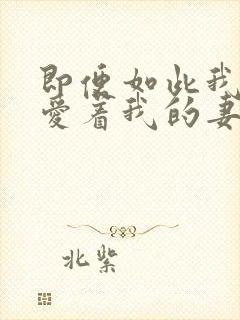 即便如此我
爱着我的妻
北紫